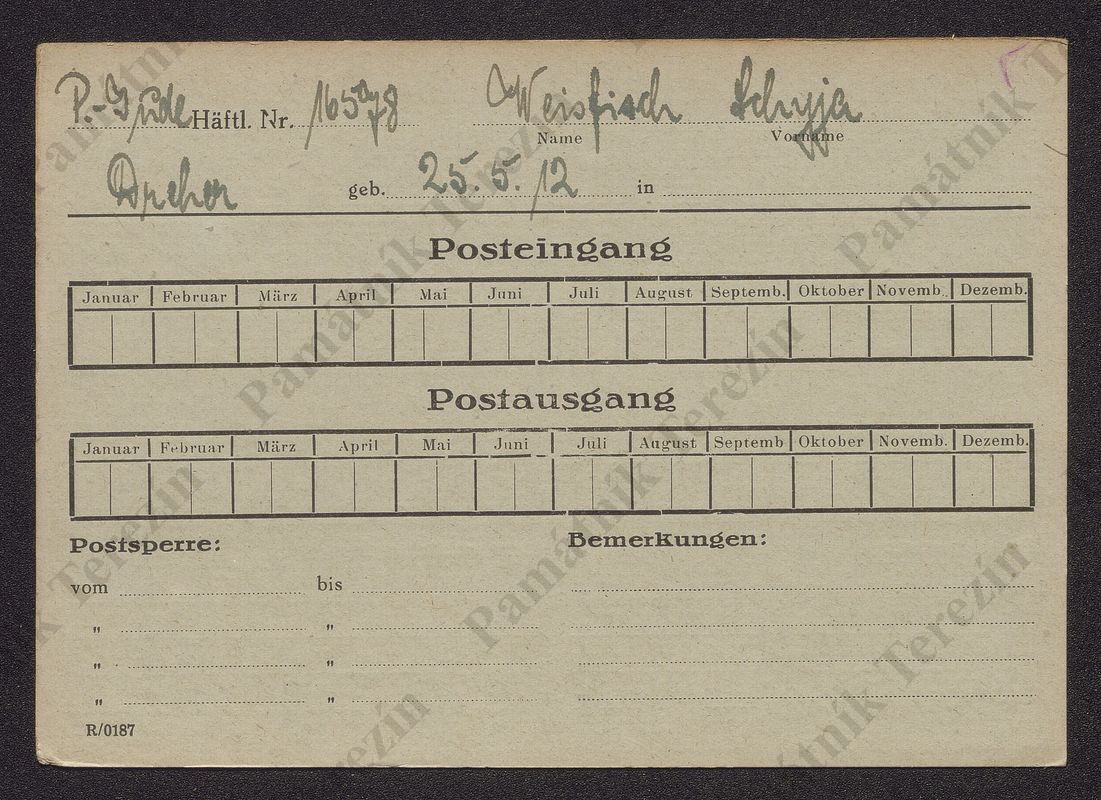 P.-Jude Häftl. Nr. 165978 Weisfisch Schyja
Name Vorname
Dreher geb. 25.5.12 in
Posteingang
Januar Februar März April Mai Juni Juli August Septemb. Oktober Novemb. Dezemb.
Postausgang
Januar Februar März April Mai Juni Juli August Septemb Oktober Novemb. Dezemb.
Postsperre: Bemerkungen:
vom bis
" "
" "
" "
R/0187
Památník Terezín